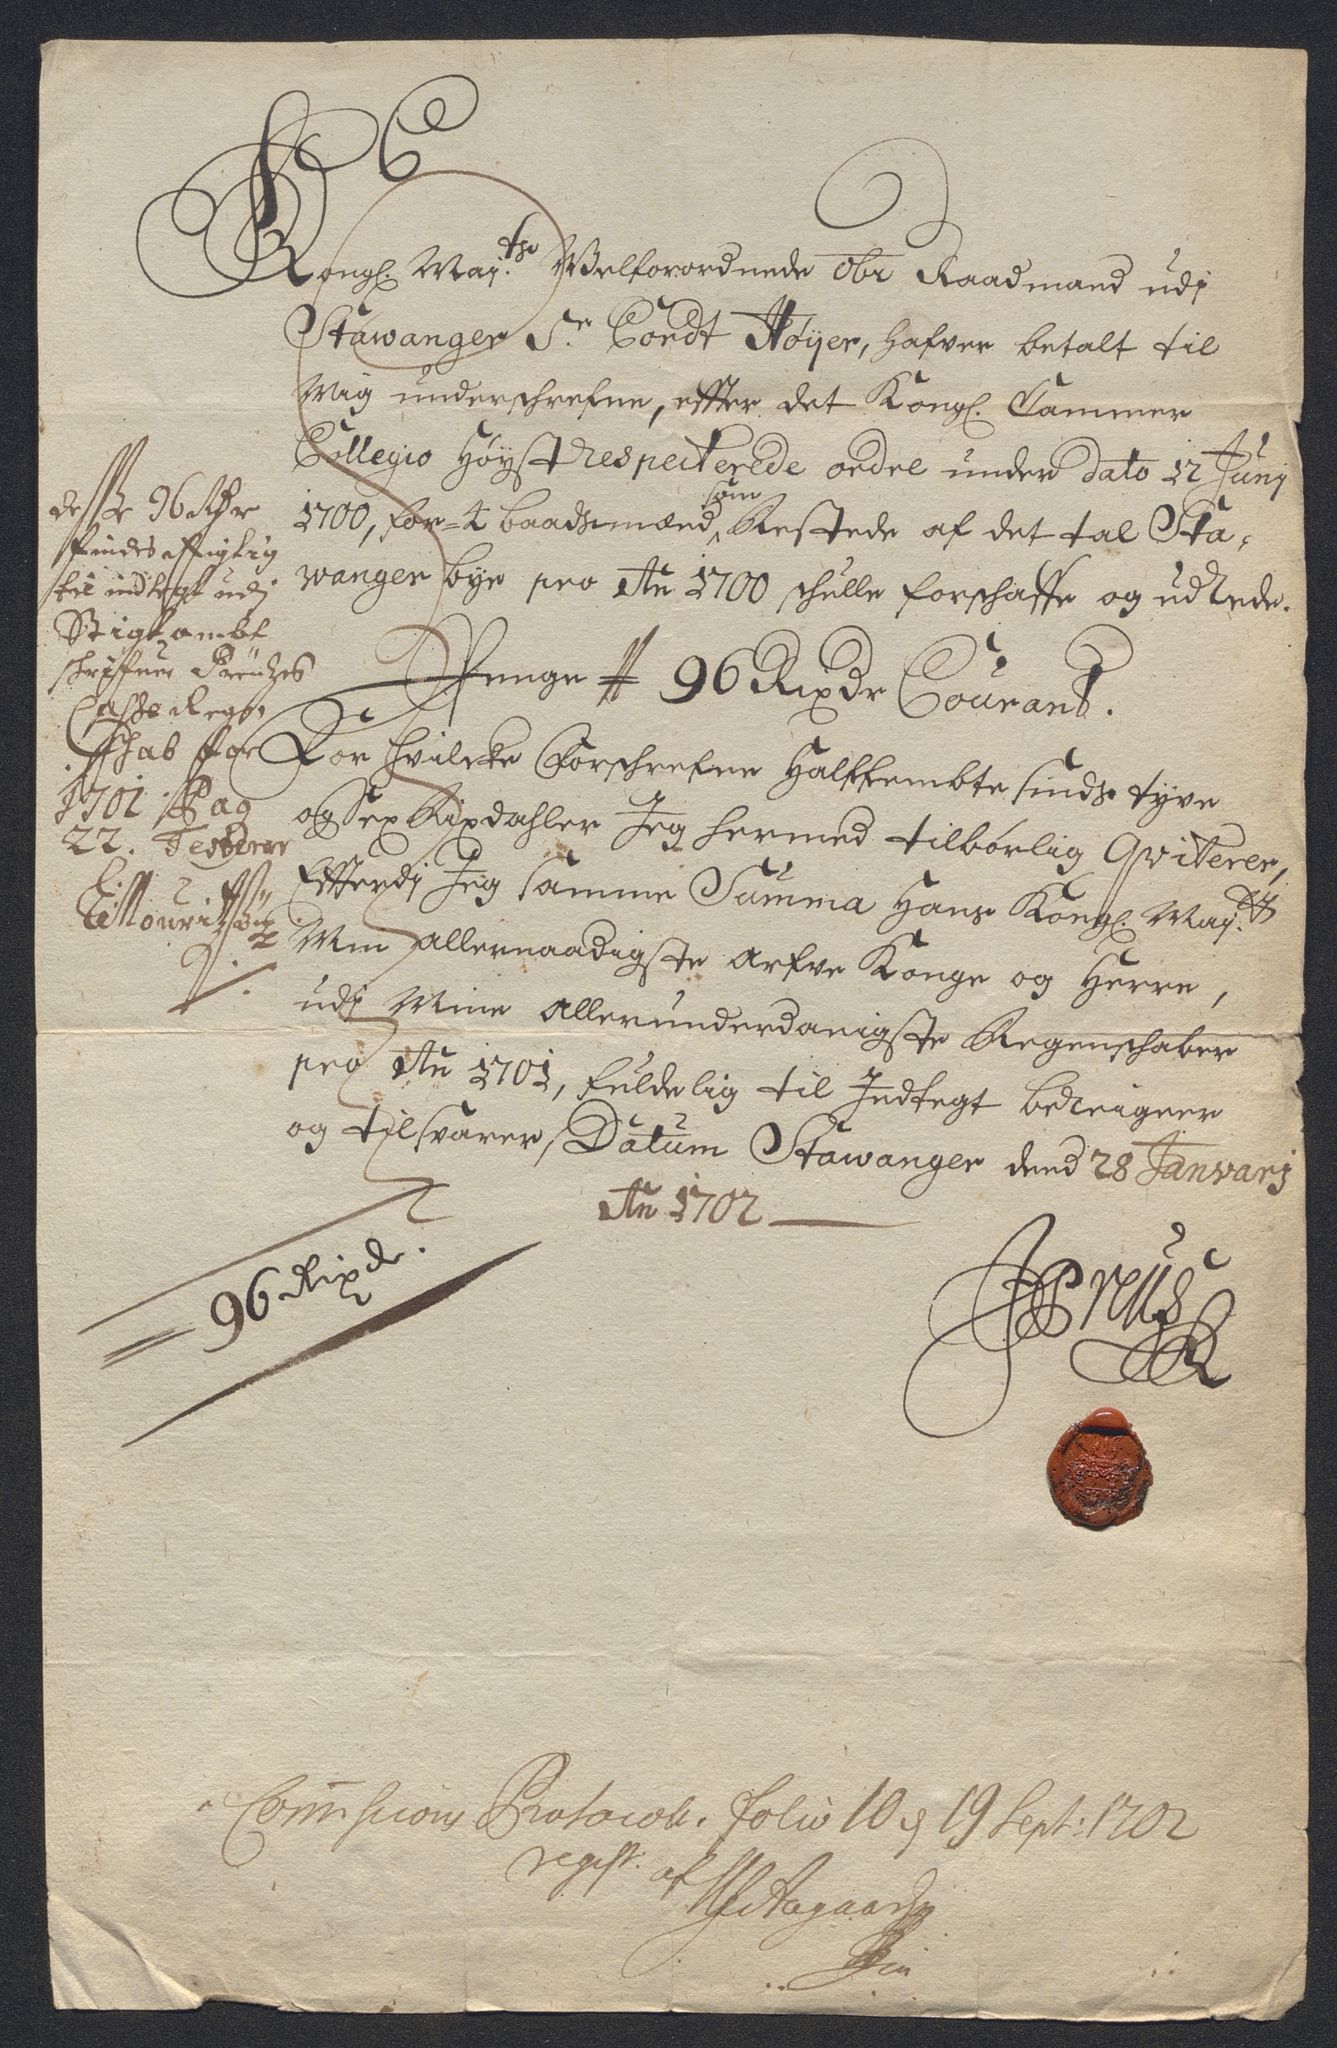 Kongl. May.ts Welforordnede obr Raadmand udj
Stawanger Sr. Cordt Høyer, hafver betalt til
Mig underschrefne, effter det Kongl. Cammer
Collegio Høyst respecterede ordre under dato 12 Junij
1700, for 4 baadsmænd, som Restede af det tal Sta-
wanger bye pro Ao 1700 schulle forschaffe og udrede.
Penge 96 Rixdr Courant.
For hvilcke forschrefne Halffembte sinds tyve
og Sex Rixdahler Jeg hermed tilbørlig Qviterer,
Efterdj Jeg samme Summa Hans Kongl. May.tt
Min allernaadigste Arfve Konge og Herre,
udj Mine allerunderdanigste Regenschaber
pro Ao 1701, fuldelig til Indtegt bereigner
og tilsvarer, Datum Stawanger dend 28 Janvarj
Ao 1702
96 Rixdr.
desse 96 Rdr
findes rigtig
til indtegt udj
Stigtambt
schrifver Preutzes
Cassa Regen-
schab for
1701 Pag
22. Testerer
Commissions Protocoll. folio 10 d 19 Sept: 1702
regist. af
Aagaard